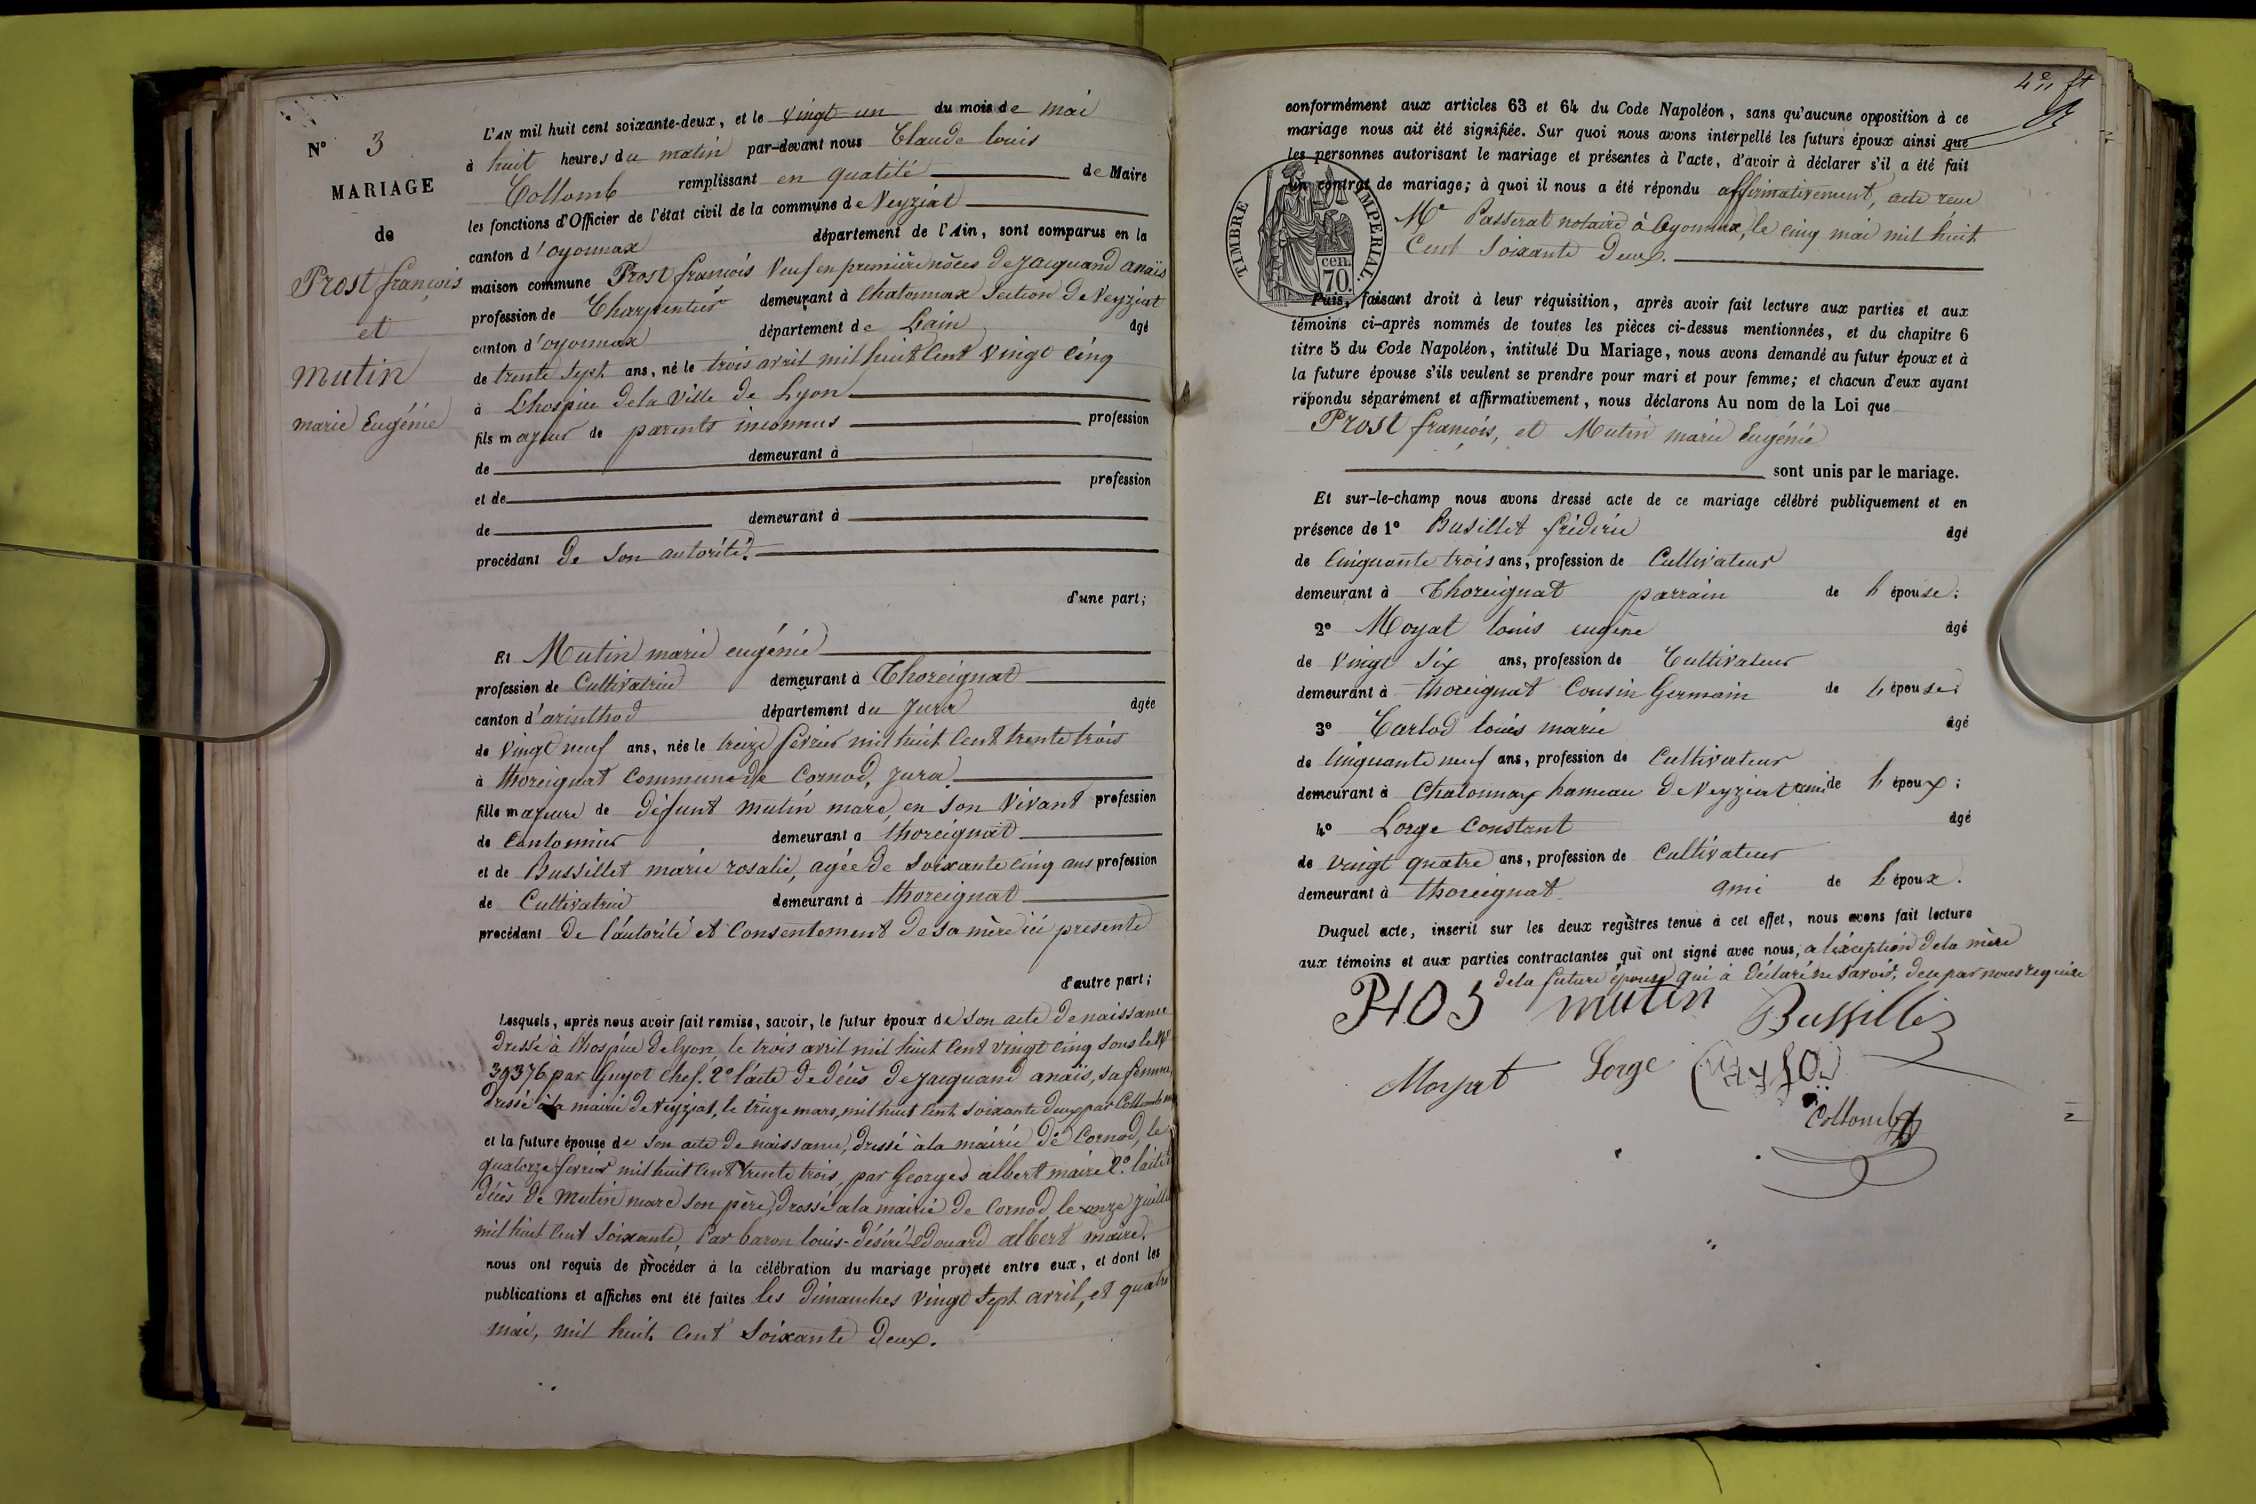 N° 3
MARIAGE
de
Prost françois
et
Mutin
marie Eugénie
L'AN mil huit cent soixante-deux, et le vingt un du mois de mai
à huit heures du matin par-devant nous Claude Louis
Collomb remplissant en qualité de Maire
les fonctions d'Officier de l'état civil de la commune de Veyziat
canton d'oyonnax département de l'Ain, sont comparus en la
maison commune Prost françois Veuf en première nôces de Jacquand anaïs
profession de Charpentier demeurant à Chatonnax Section de Veyziat
canton d'oyonnax département de Lain âgé
de trente Sept ans, né le trois avril mil huit Cent Vingt Cinq
à Lhospice dela Ville de Lyon
fils majeur de parents inconnus profession
de demeurant à
et de profession
de demeurant à
procédant De Son autorité.
d'une part;
Et Mutin marie eugénie
profession de Cultivatrice demeurant à Thoreignat
canton d'arinthod département du Jura âgée
de Vingt neuf ans, née le treize février mil huit Cent trente trois
à thoreignat Commune de Cornod, Jura
fille majeure de défunt Mutin marc, en Son Vivant profession
de Cantonnier demeurant à thoreignat
et de Bussillet marie rosalie, agée de Soixante Cinq ans profession
de Cultivatrice demeurant à thoreignat
procédant De l'autorité et Consentement de Sa mère ici présente
d'autre part;
Lesquels, après nous avoir fait remise, savoir, le futur époux de Son acte de naissance
dressé à lhospice de lyon, le trois avril mil huit Cent vingt Cinq Sous le N°
39376 par Guyot Chef. 2° l'acte de décès de Jacquand anaïs, Sa femme,
dressé à la mairie de Veyziat, le treize mars, mil huit Cent Soixante deux par Collomb
et la future épouse de Son acte de naissance, dressé à la mairie de Cornod, le
quatorze fevrier mil huit Cent trente trois, par Georges albert maire 2°. l'acte
décès de Mutin marc Son père, dressé a la mairie de Cornod le onze Juillet
mil huit Cent Soixante, Par baron louis-désiré Edouard albert maire.
nous ont requis de procéder à la célébration du mariage projeté entre eux, et dont les
publications et affiches ont été faites les dimanches Vingt Sept avril, et quatre
mai, mil huit Cent Soixante deux.
conformément aux articles 63 et 64 du Code Napoléon, sans qu'aucune opposition à ce
mariage nous ait été signifiée. Sur quoi nous avons interpellé les futurs époux ainsi que
les personnes autorisant le mariage et présentes à l'acte, d'avoir à déclarer s'il a été fait
un contrat de mariage; à quoi il nous a été répondu affirmativement, acte reçu
Me Passerat notaire à Oyonnax, le cinq mai mil huit
Cent Soixante Deux.
TIMBRE IMPERIAL.
70 cen.
Puis, faisant droit à leur réquisition, après avoir fait lecture aux parties et aux
témoins ci-après nommés de toutes les pièces ci-dessus mentionnées, et du chapitre 6
titre 5 du Code Napoléon, intitulé Du Mariage, nous avons demandé au futur époux et à
la future épouse s'ils veulent se prendre pour mari et pour femme; et chacun d'eux ayant
répondu séparément et affirmativement, nous déclarons Au nom de la Loi que
Prost françois, et Mutin marie Eugénie
sont unis par le mariage.
Et sur-le-champ nous avons dressé acte de ce mariage célébré publiquement et en
présence de 1° Busillet fréderic âgé
de Cinquante trois ans, profession de Cultivateur
demeurant à Thoreignat parrain de L épouse;
2° Moyat louis eugène âgé
de Vingt Six ans, profession de Cultivateur
demeurant à thoreignat Cousin Germain de L épouse;
3° Carlod louis marie âgé
de Cinquante neuf ans, profession de Cultivateur
demeurant à Chatonnax hameau de Veyziat ami de L époux;
4° Lorge Constant âgé
de vingt quatre ans, profession de Cultivateur
demeurant à thoreignat ami de L époux.
Duquel acte, inscrit sur les deux registres tenus à cet effet, nous avons fait lecture
aux témoins et aux parties contractantes qui ont signé avec nous, a l'exception de la mère
de la future épouse qui à déclaré ne Savoir, de ce par nous requise
Pros mutin Bussillet
Moyat Lorge
Collomb